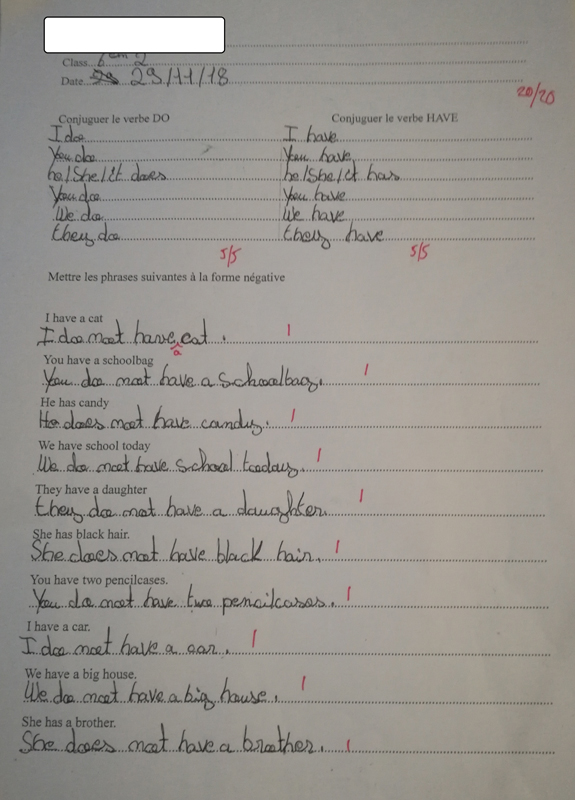 Class...6 em 2
Date 29/11/18
20/20
Conjuguer le verbe DO Conjuguer le verbe HAVE
I do I have
You do You have
he/She/It does he/She/It has
You do You have
We do We have
they do they have
5/5 5/5
Mettre les phrases suivantes à la forme négative
I have a cat
I do not have a cat. 1
You have a schoolbag
You do not have a schoolbag. 1
He has candy
He does not have candy. 1
We have school today
We do not have school today. 1
They have a daughter
they do not have a daughter. 1
She has black hair.
She does not have black hair. 1
You have two pencilcases.
You do not have two pencilcases. 1
I have a car.
I do not have a car. 1
We have a big house.
We do not have a big house. 1
She has a brother.
She does not have a brother. 1